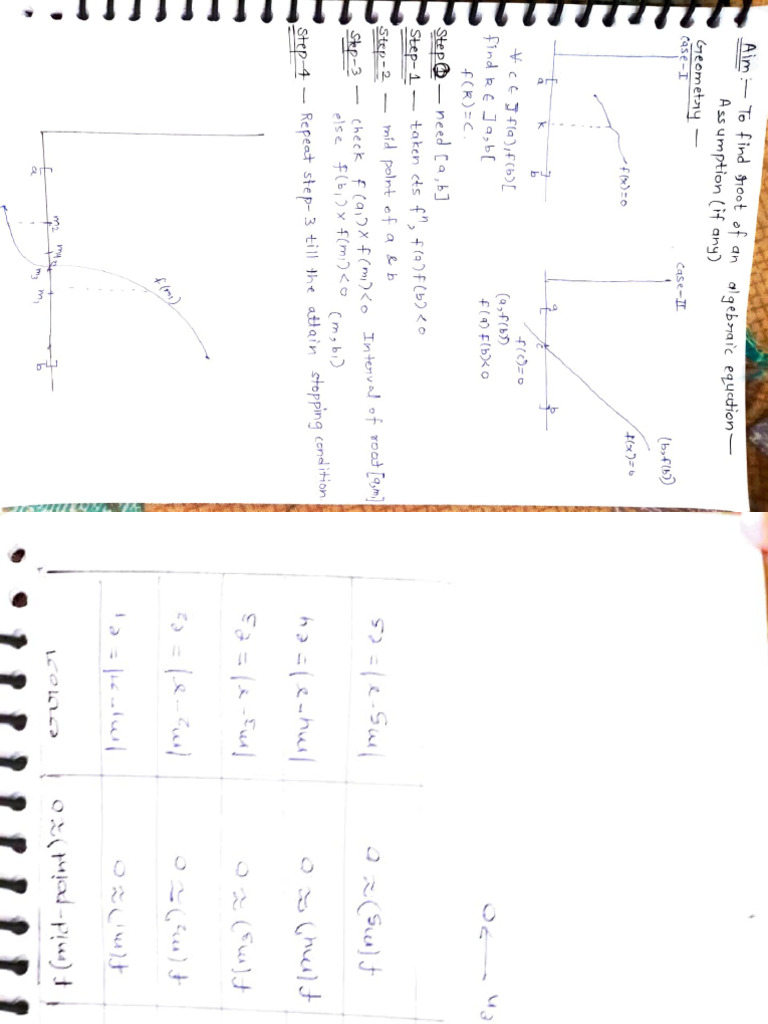 Aim:- To find root of an algebraic equation-
Assumption (if any)
Geometry -
case-I
f(x)=0
a
k
b
∀ c ∈ ]f(a), f(b)[
find k ∈ ]a, b[
f(k)=c.
case-II
(b, f(b))
f(x)=0
a
c
b
f(c)=0
(a, f(b))
f(a) f(b)<0
Step - need [a, b]
Step-1 - taken cts fⁿ, f(a) f(b) < 0
Step-2 - mid point of a & b
Step-3 - check f(a₁) x f(m₁)<0 Interval of root [a,m]
else f(b₁) x f(m₁)<0 (m, b₁)
Step-4 - Repeat step-3 till the attain stopping condition
f(m₁)
a
m₂
m₄
m₃
m₁
b
error
f(mid-point)≈0
|m₁-r|=e₁
f(m₁)≈0
|m₂-r|=e₂
f(m₂)≈0
|m₃-r|=e₃
f(m₃)≈0
|m₄-r|=e₄
f(m₄)≈0
|m₅-r|=e₅
f(m₅)≈0